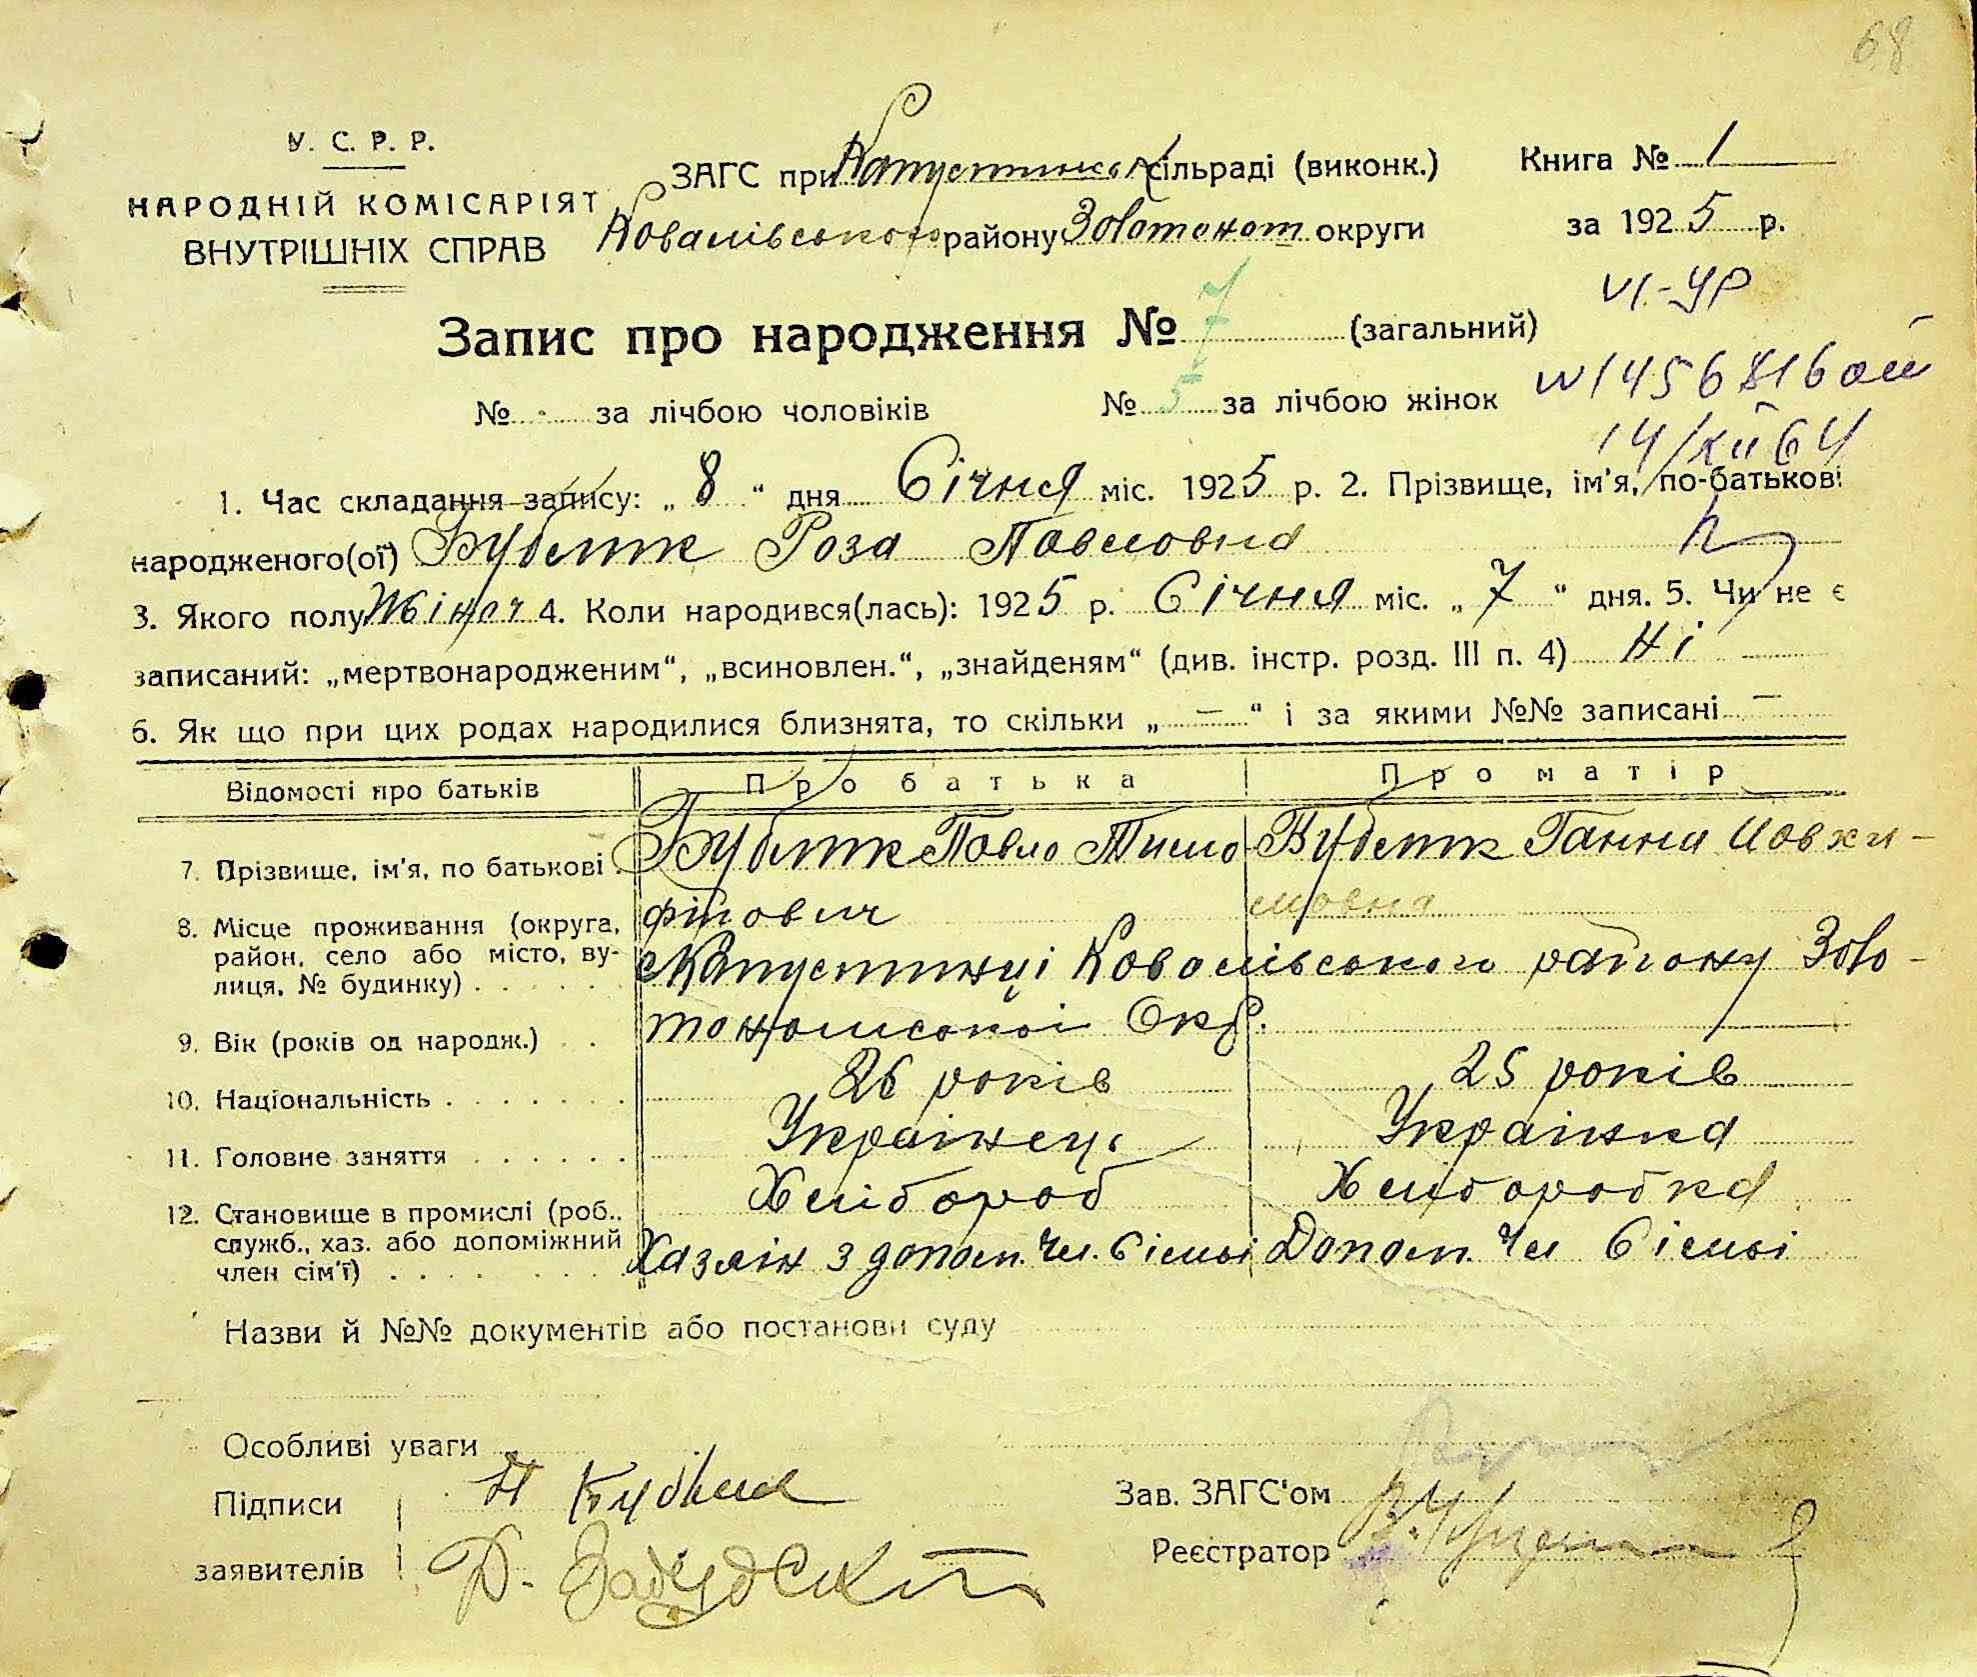 68
У. С. Р. Р.
НАРОДНІЙ КОМІСАРІЯТ
ВНУТРІШНІХ СПРАВ
ЗАГС при Капустинськ сільраді (виконк.)
Ковалівського району Золотонот округи
Книга № 1
за 1925 р.
VI-УР
Запис про народження № 7 (загальний)
№ - за лічбою чоловіків № 5 за лічбою жінок
14/XII 64
1. Час складання запису: „ 8 “ дня Січня міс. 1925 р. 2. Прізвище, ім'я, по-батькові
народженого(ої) Бублик Роза Павловна
3. Якого полу Жіноч 4. Коли народився(лась): 1925 р. Січня міс. „ 7 “ дня. 5. Чи не є
записаний: „мертвонародженим“, „всиновлен.“, „знайденям“ (див. інстр. розд. III п. 4) Ні
6. Як що при цих родах народилися близнята, то скільки „ — “ і за якими №№ записані —
Відомості про батьків Про батька Про матір
7. Прізвище, ім'я, по батькові . Бублик Павло Тимо- Бублик Ганна Йовхи-
фійович мовна
8. Місце проживання (округа, район, село або місто, вулиця, № будинку) . . . . . . с Капустинці Ковалівського району Золо-
тоношської Окр.
9. Вік (років од народж.) . . 26 років 25 років
10. Національність . . . . . . . Українець Українка
11. Головне заняття . . . . . . Хлібороб Хліборобка
12. Становище в промислі (роб., служб., хаз. або допоміжний член сім'ї) . . . . . . . Хазяїн з допом. Чл. Сімьі Допом. Чл Сімьі
Назви й №№ документів або постанови суду
Особливі уваги
Підписи
заявителів
Зав. ЗАГС'ом
Реєстратор